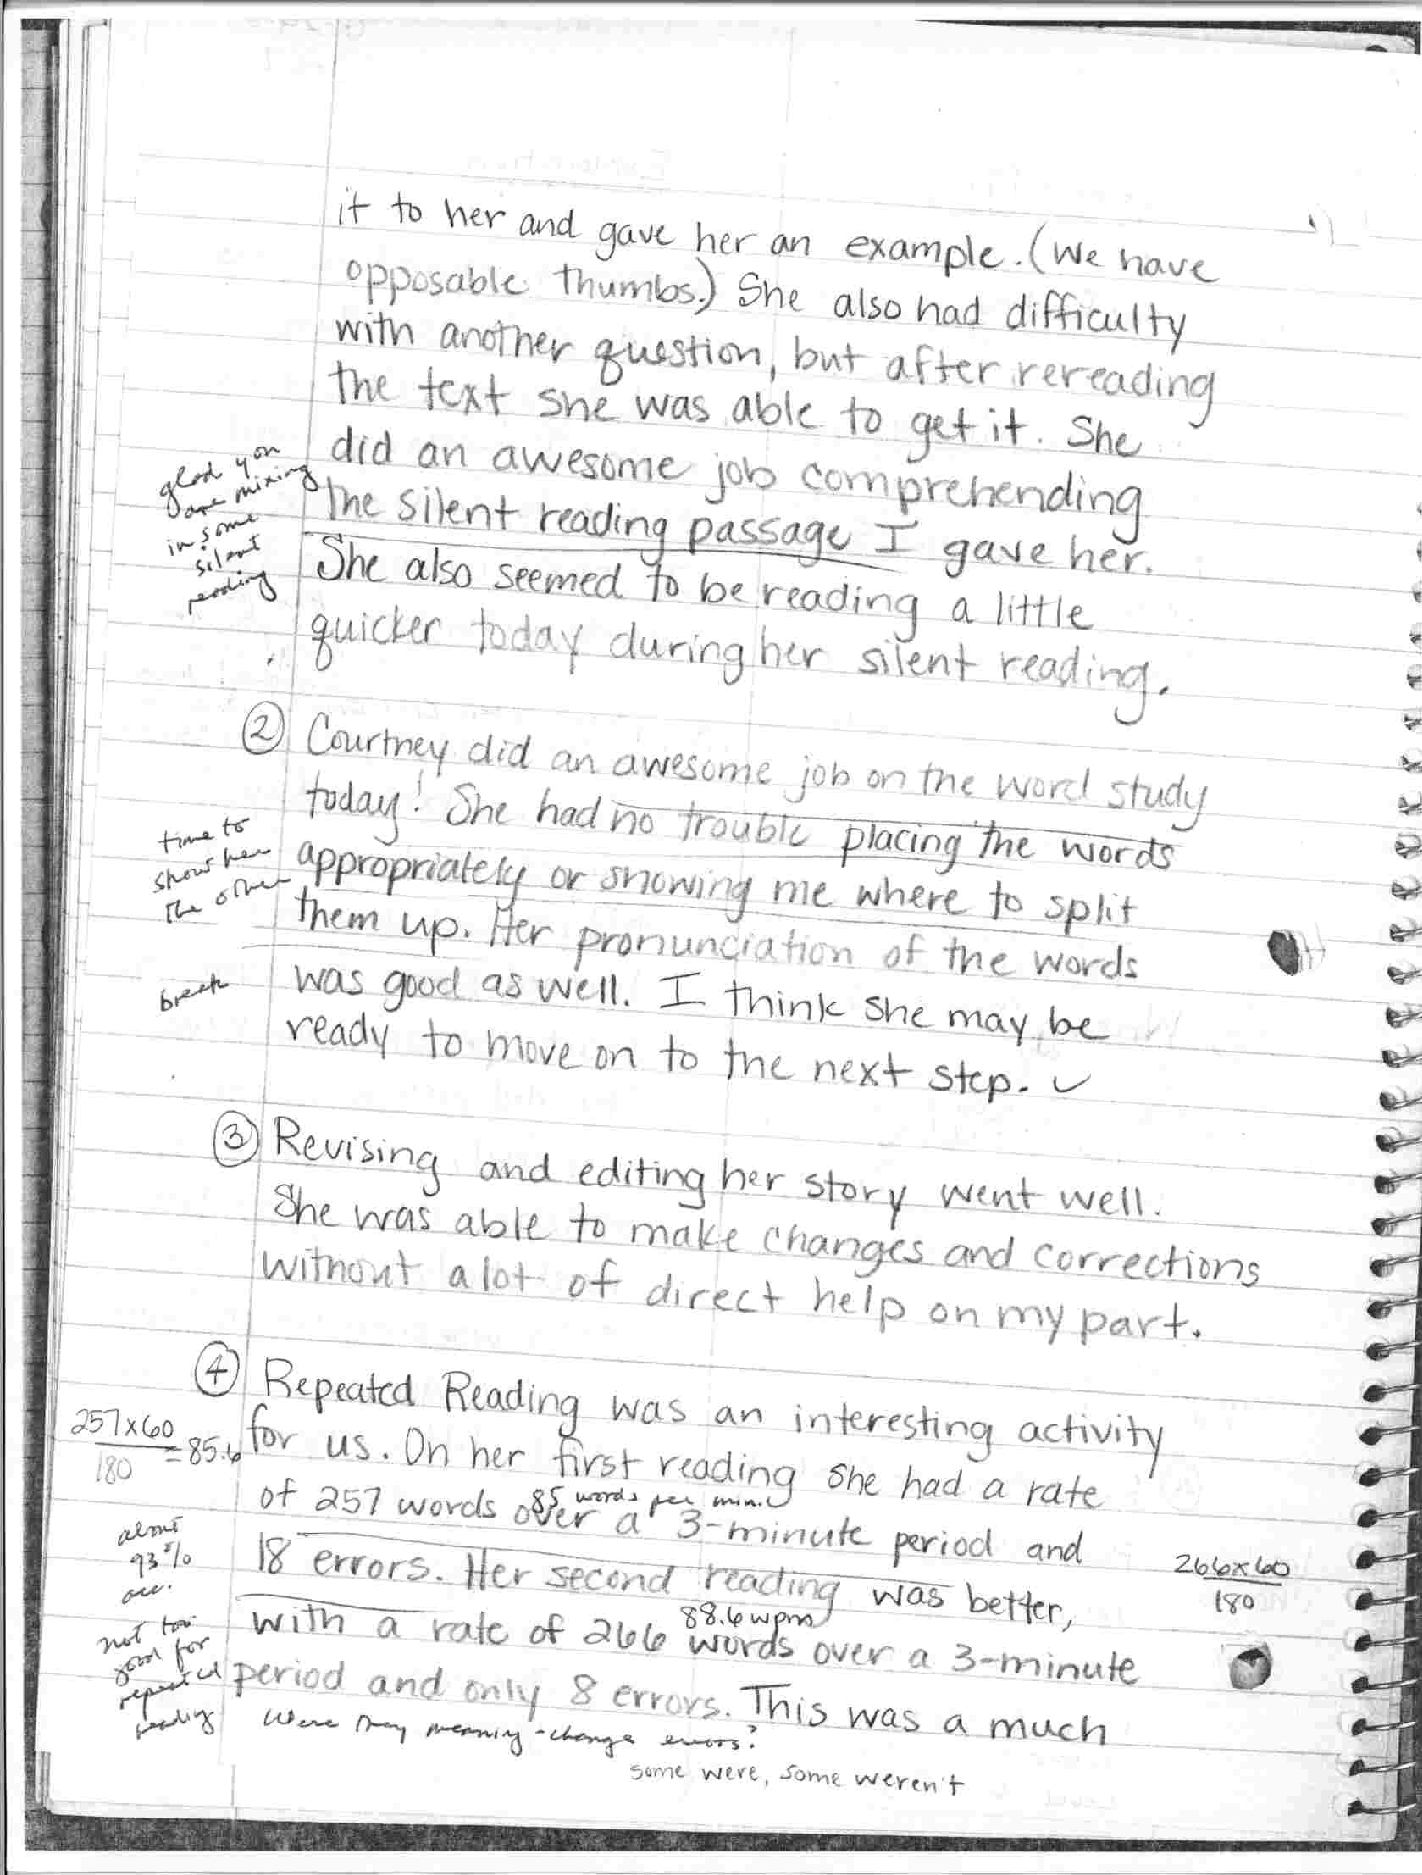 it to her and gave her an example. (We have
opposable thumbs.) She also had difficulty
with another question, but after rereading
the text she was able to get it. She
did an awesome job comprehending
glad you
are mixing
in some
silent
reading
the silent reading passage I gave her.
She also seemed to be reading a little
quicker today during her silent reading.
② Courtney did an awesome job on the word study
today! She had no trouble placing the words
time to
show her
the other
break
appropriately or showing me where to split
them up. Her pronunciation of the words
was good as well. I think she may be
ready to move on to the next step. ✓
③ Revising and editing her story went well.
She was able to make changes and corrections
without a lot of direct help on my part.
④ Repeated Reading was an interesting activity
257x60
180
= 85.6
for us. On her first reading she had a rate
85 words per min.
of 257 words over a 3-minute period and
about
93%
acc.
not too
good for
repeated
reading
18 errors. Her second reading was better,
266x60
180
88.6 wpm
with a rate of 266 words over a 3-minute
period and only 8 errors. This was a much
Were they meaning-change errors?
some were, some weren't